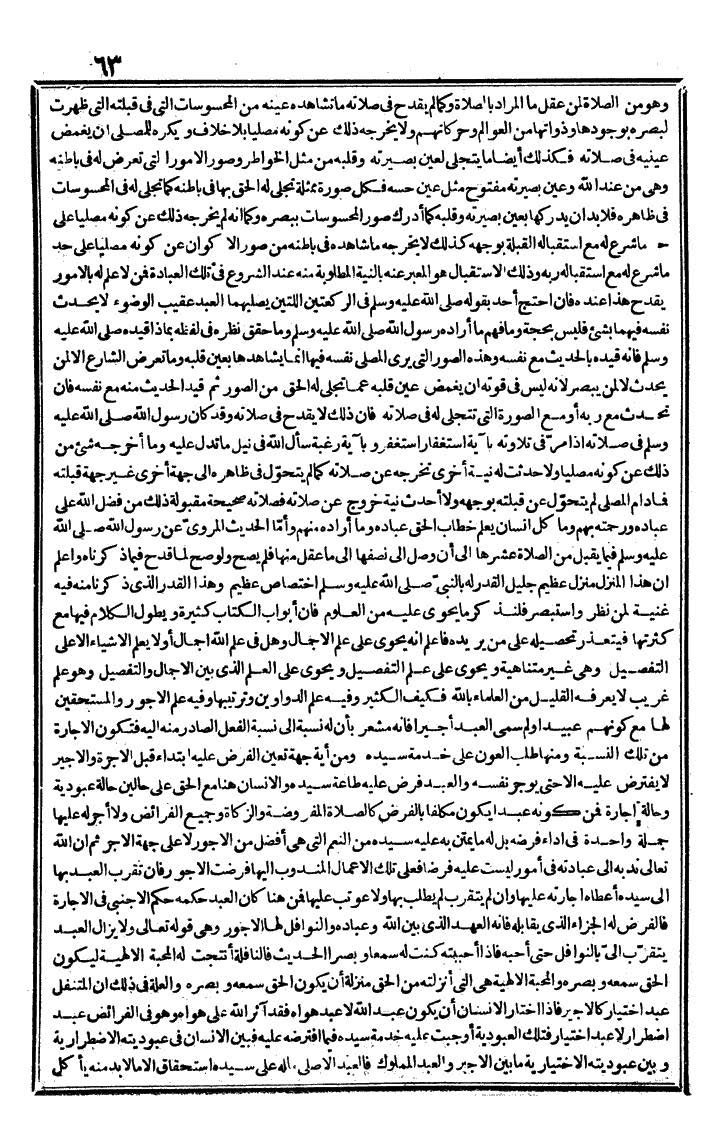 ٦٣
وهو من الصلاة لمن عقل ما المراد بالصلاة وكما لم يقدح فى صلاته ما تشاهده عينه من المحسوسات التى فى قبلته التى ظهرت
لبصره بوجودها وذواتها من العوالم وحركاتهم ولا يخرجه ذلك عن كونه مصليا بلا خلاف ويكره للمصلى ان يغمض
عينيه فى صلاته فكذلك أيضا ما يتجلى لعين بصيرته وقلبه من مثل الخواطر وصور الامور التى تعرض له فى باطنه
وهى من عند الله وعين بصيرته مفتوح مثل عين حسه فكل صورة ممثلة تجلى له الحق بها فى باطنه كما تجلى له فى المحسوسات
فى ظاهره فلابد ان يدركها بعين بصيرته وقلبه كما أدرك صور المحسوسات ببصره وكما انه لم يخرجه ذلك عن كونه مصليا على
حد ما شرع له مع استقباله القبلة بوجهه كذلك لا يخرجه ما شاهده فى باطنه من صور الاكوان عن كونه مصليا على حد
ما شرع له مع استقباله ربه وذلك الاستقبال هو المعبر عنه بالنية المطلوبة منه عند الشروع فى تلك العبادة فمن لا علم له بالامور
يقدح هذا عنده فان احتج أحد بقوله صلى الله عليه وسلم فى الركعتين اللتين يصليهما العبد عقيب الوضوء لا يحدث
نفسه فيهما بشئ فليس بحجة وما فهم ما أراده رسول الله صلى الله عليه وسلم وما حقق نظره فى لفظه بماذا قيده صلى الله عليه
وسلم فانه قيده بالحديث مع نفسه وهذه الصور التى يرى المصلى نفسه فيها انما يشاهدها بعين قلبه وما تعرض الشارع الا لمن
يحدث لا لمن يبصر لانه ليس فى قوته ان يغمض عين قلبه عما تجلى له الحق من الصور ثم قيد الحديث منه مع نفسه فان
تحدث مع ربه أو مع الصورة التى تتجلى له فى صلاته فان ذلك لا يقدح فى صلاته وقد كان رسول الله صلى الله عليه
وسلم فى صلاته اذا مر فى تلاوته بآية استغفار استغفر وبآية رغبة سأل الله فى نيل ما تدل عليه وما أخرجه شئ من
ذلك عن كونه مصليا ولا حدثت له نية أخرى تخرجه عن صلاته كما لم يتحول فى ظاهره الى جهة أخرى غير جهة قبلته
فمادام المصلى لم يتحول عن قبلته بوجهه ولا أحدث نية خروج عن صلاته فصلاته صحيحة مقبولة ذلك من فضل الله على
عباده ورحمته بهم وما كل انسان يعلم خطاب الحق عباده وما أراده منهم وأما الحديث المروى عن رسول الله صلى الله
عليه وسلم فيما يقبل من الصلاة عشرها الى أن وصل الى نصفها الى ما عقل منها فلم يصح ولو صح لما قدح فيما ذكرناه واعلم
ان هذا المنزل منزل عظيم جليل القدر له بالنبى صلى الله عليه وسلم اختصاص عظيم وهذا القدر الذى ذكرنا منه فيه
غنية لمن نظر واستبصر فلنذكر ما يحوى عليه من العلوم فان أبواب الكتاب كثيرة ويطول الكلام فيها مع
كثرتها فيتعذر تحصيله على من يريده فاعلم انه يحوى على علم الاجمال وهل فى علم الله اجمال أولا يعلم الاشياء الاعلى
التفصيل وهى غير متناهية ويحوى على علم التفصيل ويحوى على العلم الذى بين الاجمال والتفصيل وهو علم
غريب لا يعرفه القليل من العلماء بالله فكيف الكثير وفيه علم الدواوين وترتيبها وفيه علم الاجور والمستحقين
لها مع كونهم عبيدا ولم سمى العبد أجيرا فانه مشعر بأن له نسبة الى نسبة الفعل الصادر منه اليه فتكون الاجارة
من تلك النسبة ومنها طلب العون على خدمة سيده ومن أية جهة تعين الفرض عليه ابتداء قبل الاجرة والاجير
لا يفترض عليه الا حتى يوجر نفسه والعبد فرض عليه طاعة سيده والانسان هنا مع الحق على حالين حالة عبودية
وحالة إجارة فمن كونه عبدا يكون مكلفا بالفرض كالصلاة المفروضة والزكاة وجميع الفرائض ولا أجر له عليها
جملة واحدة فى اداء فرضه بل له ما يمتن به عليه سيده من النعم التى هى أفضل من الاجور لا على جهة الاجر ثم ان الله
تعالى ندبه الى عبادته فى أمور ليست عليه فرضا فعلى تلك الاعمال المندوب اليها فرضت الاجور فان تقرب العبد بها
الى سيده أعطاه اجارته عليها وان لم يتقرب لم يطلب بها ولا عوتب عليها فمن هنا كان العبد حكمه حكم الاجنبى فى الاجارة
فالفرض له الجزاء الذى يقابله فانه العهد الذى بين الله وعباده والنوافل لها الاجور وهى قوله تعالى ولا يزال العبد
يتقرب الى بالنوافل حتى أحبه فاذا أحببته كنت له سمعا وبصرا الحديث فالنافلة أنتجت له المحبة الالهية ليكون
الحق سمعه وبصره والمحبة الالهية هى التى أنزلته من الحق منزلة أن يكون الحق سمعه وبصره والعلة فى ذلك ان المتنفل
عبد اختيار كالاجير فاذا اختار الانسان أن يكون عبد الله لا عبد هواه فقد آثر الله على هواه وهو فى الفرائض عبد
اضطرار لا عبد اختيار فتلك العبودية أوجبت عليه خدمة سيده فيما افترضه عليه فبين الانسان فى عبوديته الاضطرارية
وبين عبوديته الاختيارية ما بين الاجير والعبد المملوك فالعبد الاصلى ماله على سيده استحقاق الا ما لابد منه يأكل